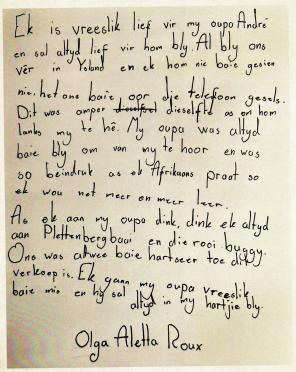 Ek is vreeslik lief vir my oupa André
en sal altyd lief vir hom bly. Al bly ons
vêr in Ysland en ek hom nie baie gesien
nie, het ons baie oor die telefoon gesels.
Dit was amper dieselfsel dieselfde as om hom
langs my te hê. My oupa was altyd
baie bly om van my te hoor en was
so beïndruk as ek Afrikaans praat so
ek wou net meer en meer leer.
As ek aan my oupa dink, dink ek altyd
aan Plettenbergbaai en die rooi buggy.
Ons was altwee baie hartseer toe dit
verkoop is. Ek gaan my oupa vreeslik
baie mis en hy sal altyd in my hartjie bly.
Olga Aletta Roux